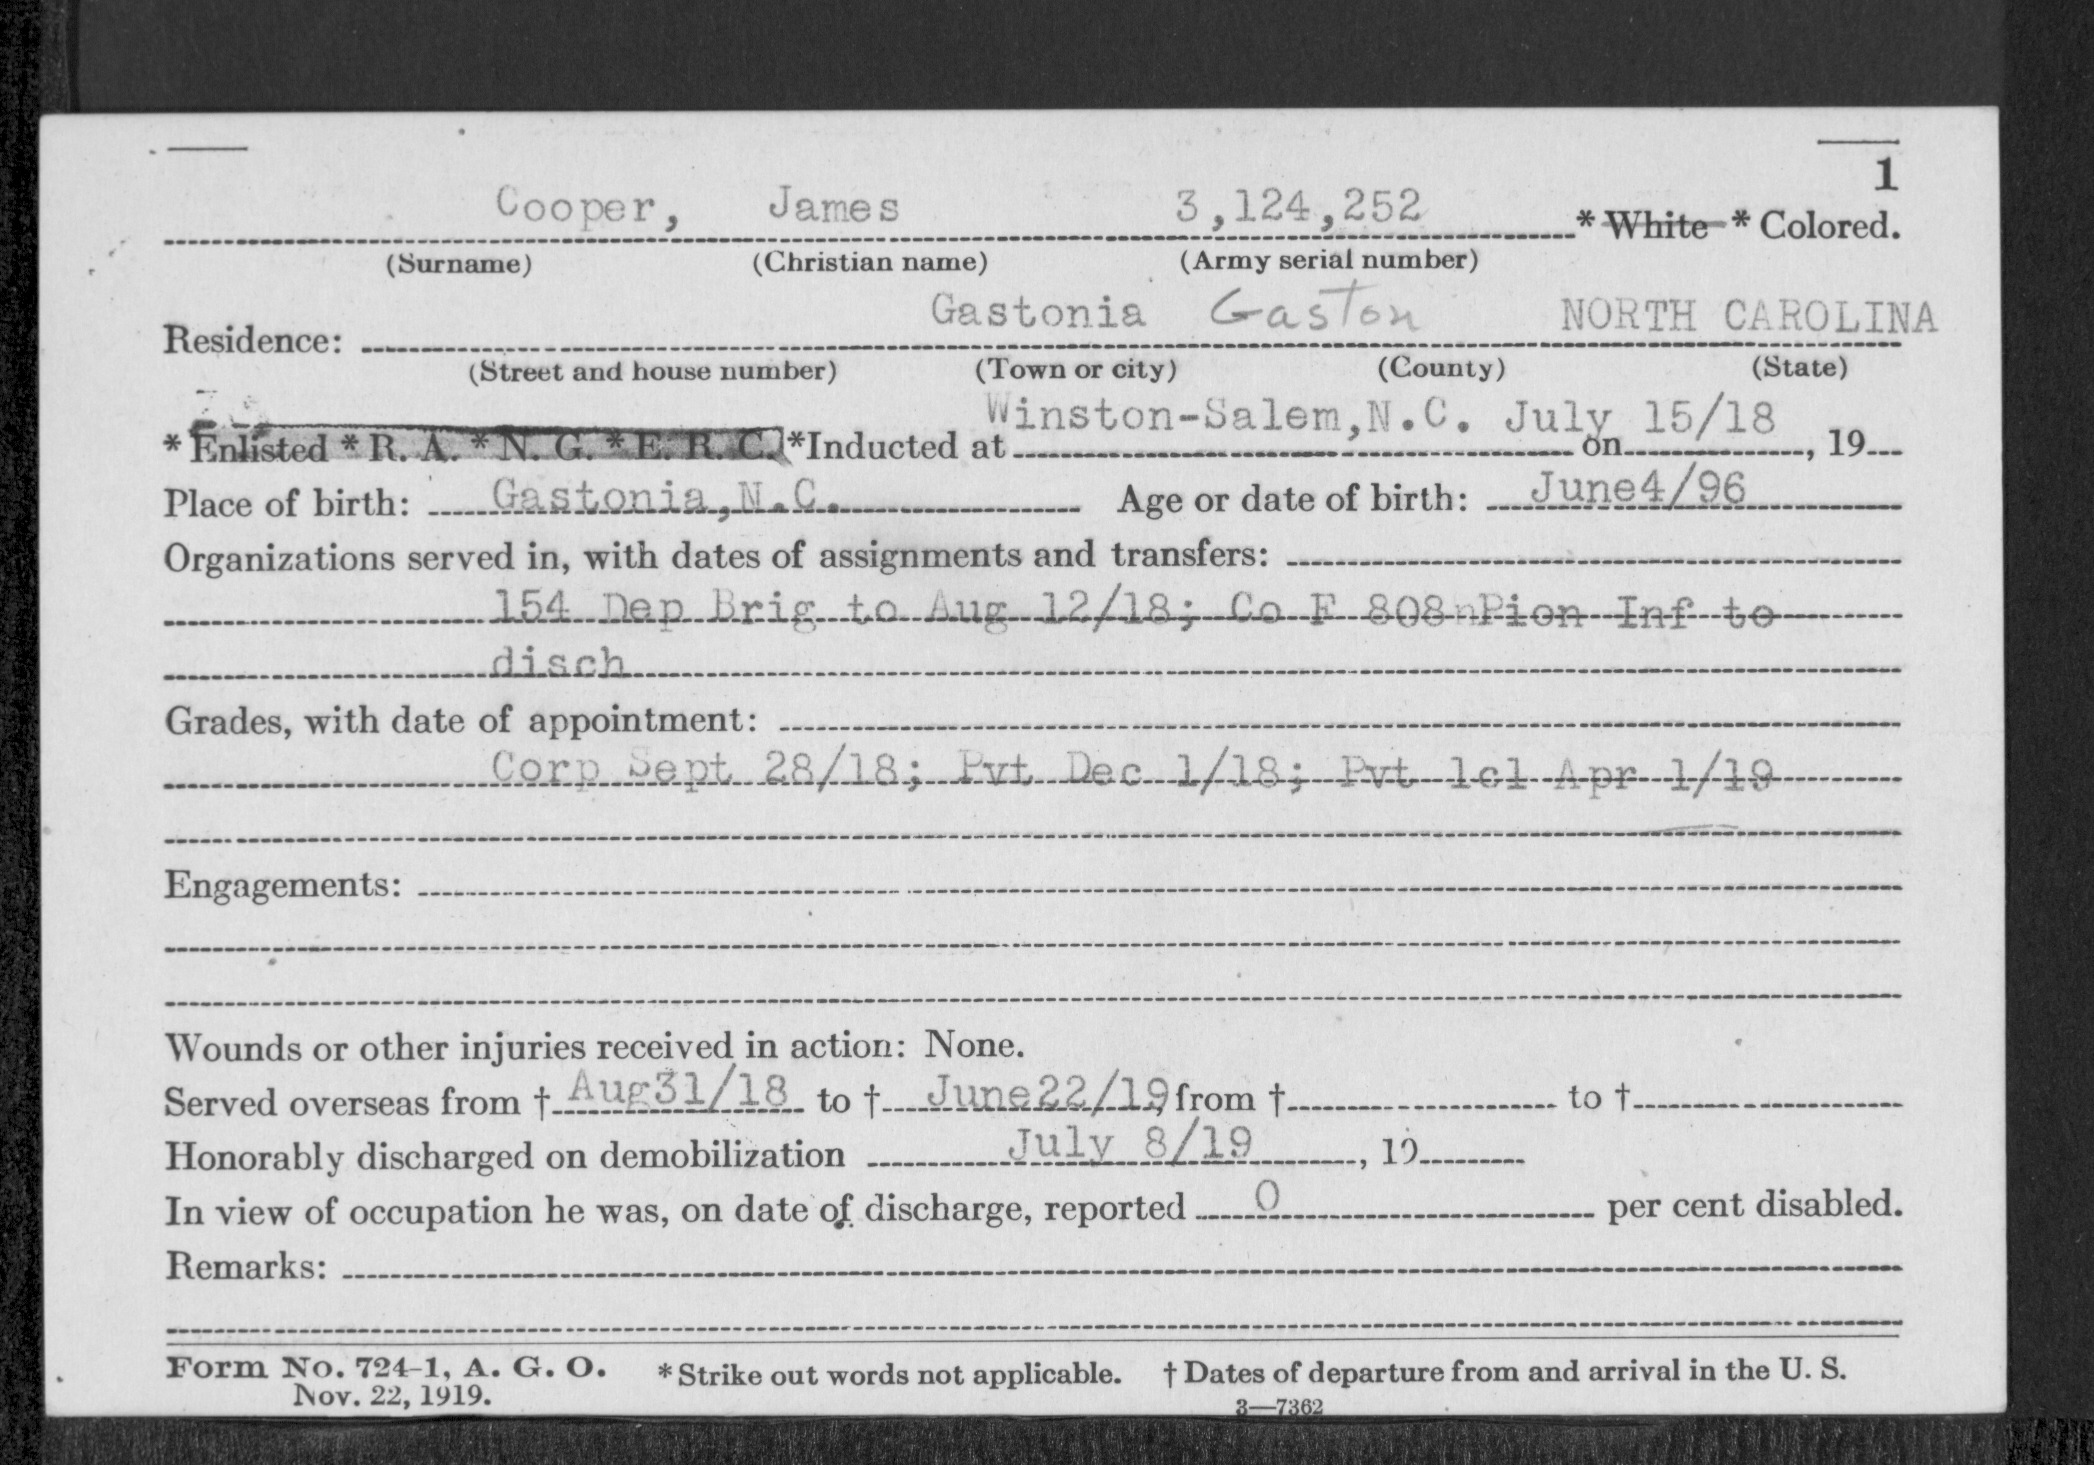 1
Cooper, James 3,124,252 * White * Colored.
(Surname) (Christian name) (Army serial number)
Gastonia Gaston NORTH CAROLINA
Residence:
(Street and house number) (Town or city) (County) (State)
Winston-Salem, N.C. July 15/18
* Enlisted * R. A. * N. G. * E. R. C. *Inducted at on , 19
Place of birth: Gastonia, N.C. Age or date of birth: June4/96
Organizations served in, with dates of assignments and transfers:
154 Dep Brig to Aug 12/18; Co F 808 Pion Inf to
disch
Grades, with date of appointment:
Corp Sept 28/18; Pvt Dec 1/18; Pvt 1cl Apr 1/19
Engagements:
Wounds or other injuries received in action: None.
Served overseas from † Aug31/18 to † June22/19, from † to †
Honorably discharged on demobilization July 8/19, 19
In view of occupation he was, on date of discharge, reported 0 per cent disabled.
Remarks:
Form No. 724-1, A. G. O. * Strike out words not applicable. † Dates of departure from and arrival in the U. S.
Nov. 22, 1919. 3—7362